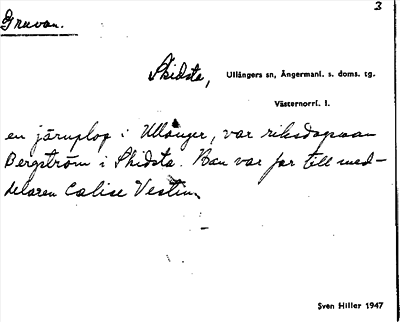 Gruvan.
3
Skidsta, Ullångers sn, Ångermanl. s. doms. tg.
Västernorrl. l.
en järnplog i Ullånger, var riksdagsman
Bergström i Skidsta. Han var far till med-
delaren Calise Vestin.
Sven Hiller 1947